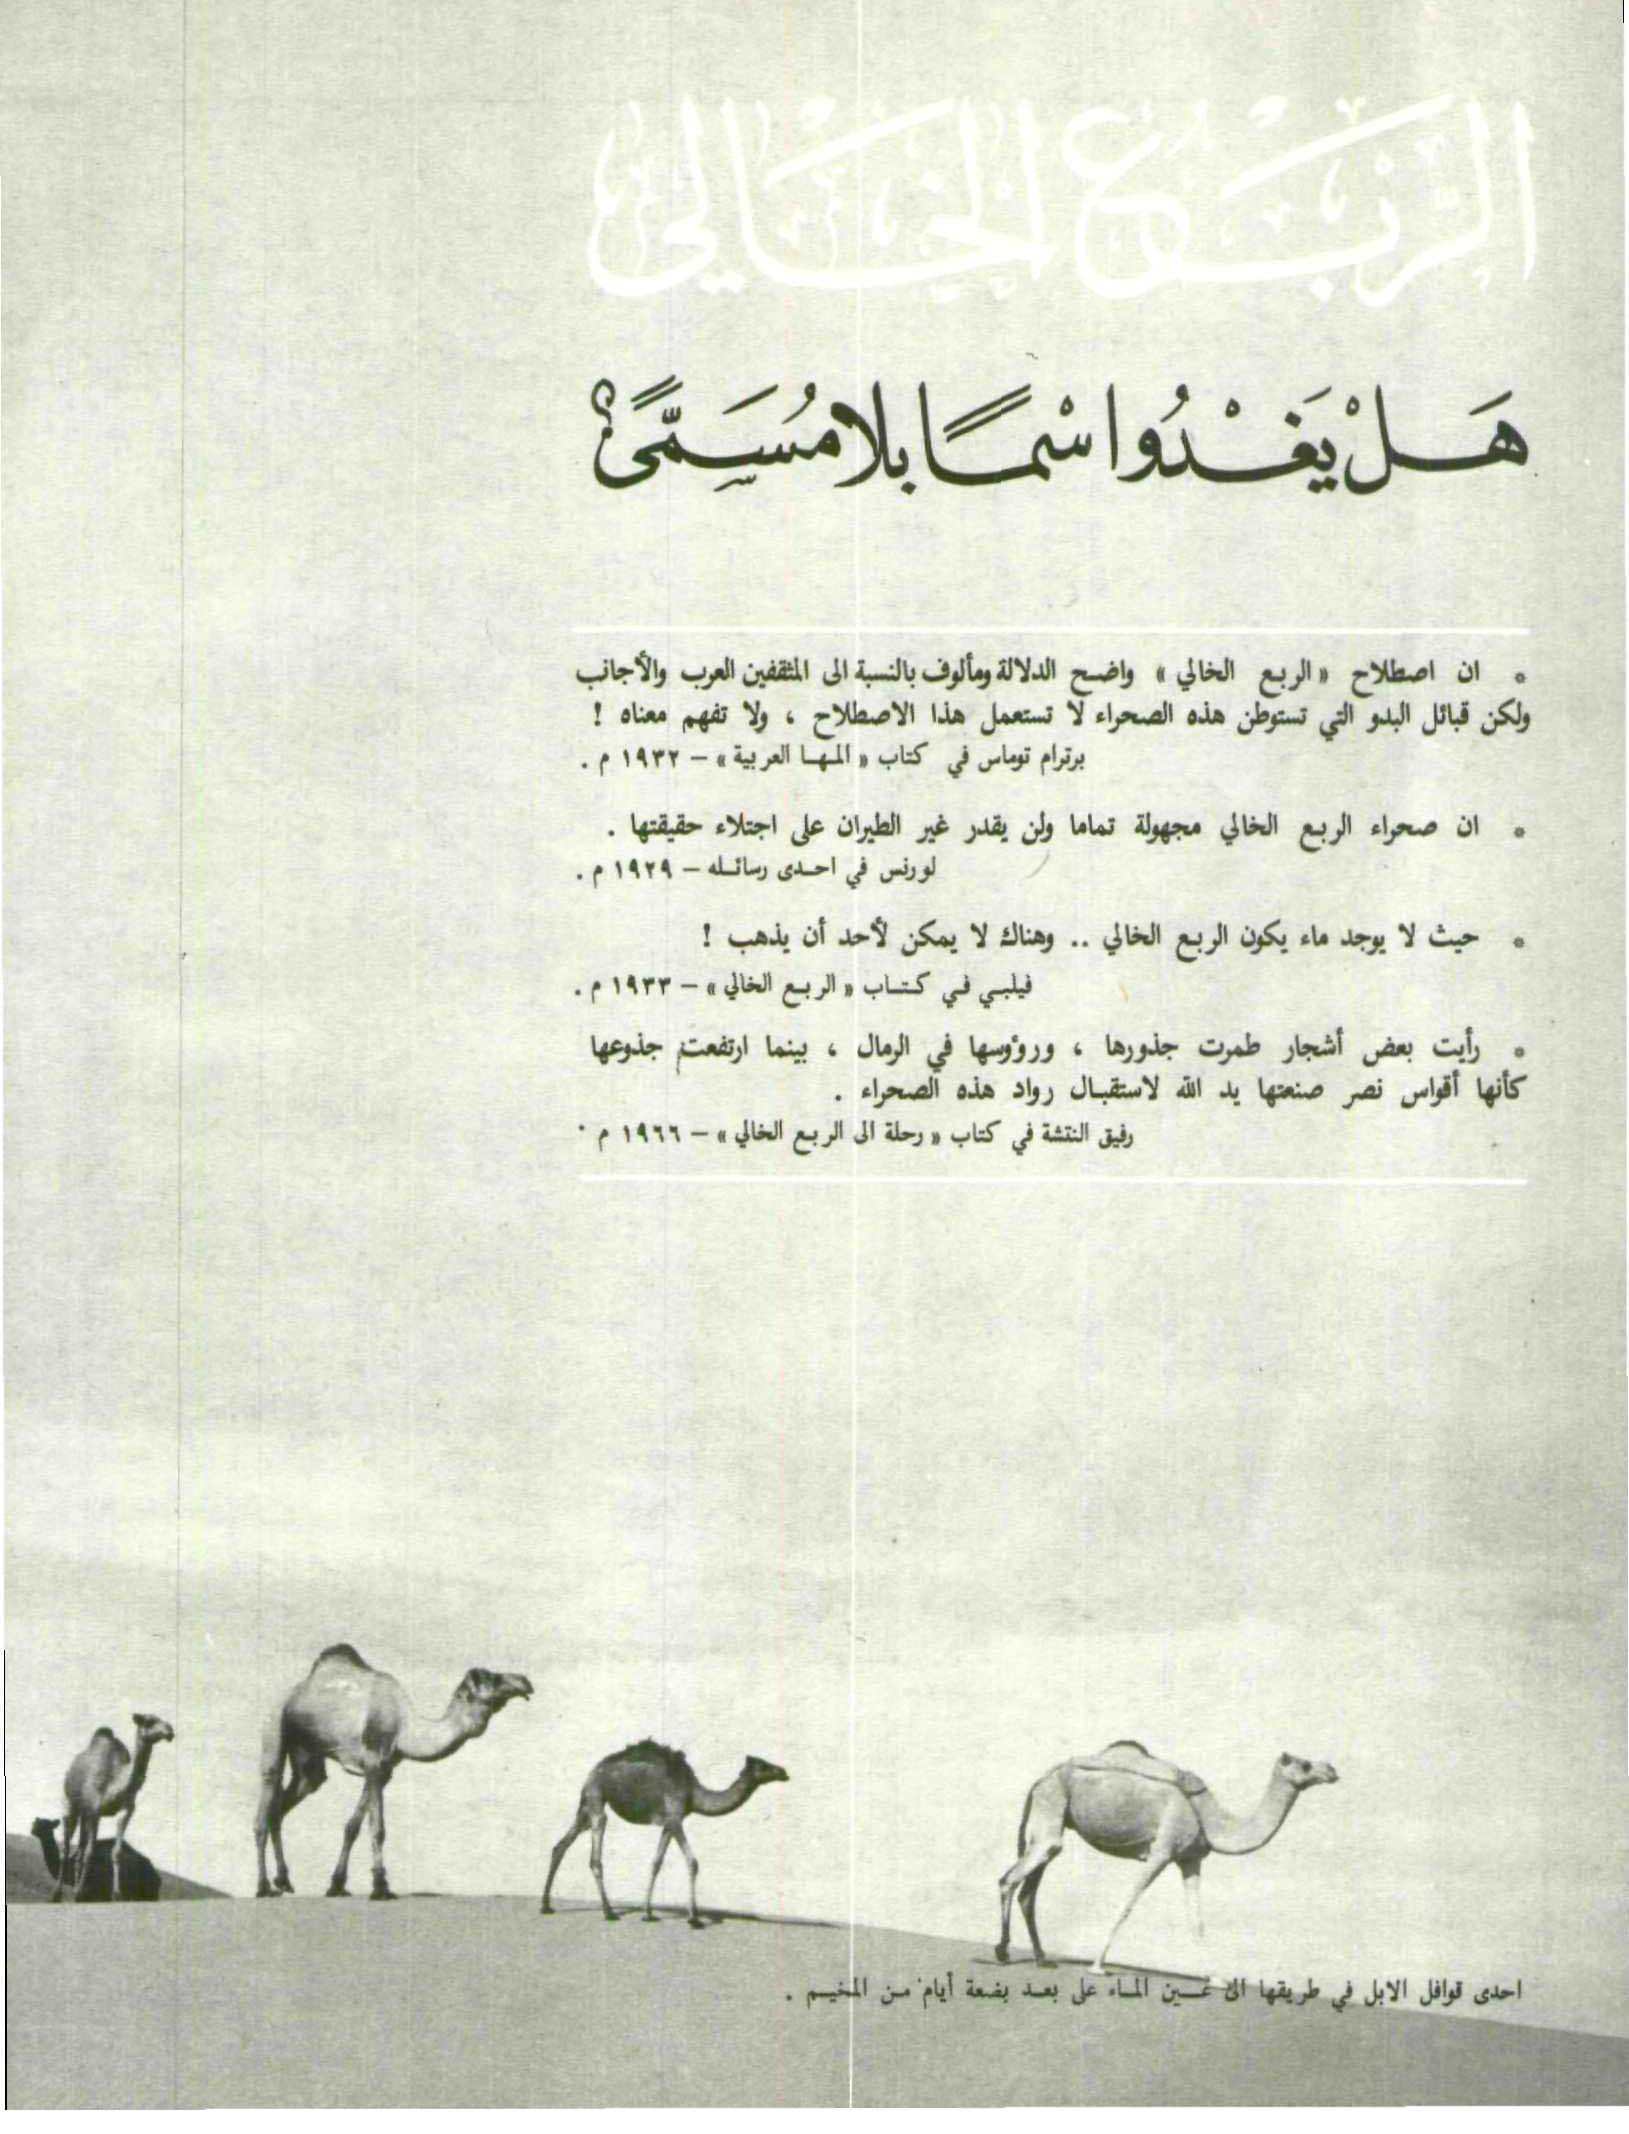 الربع الخالي
هَلْ يَغْدُو اسْمًا بلا مُسَمَّىً؟
* ان اصطلاح « الربع الخالي » واضح الدلالة ومألوف بالنسبة الى المثقفين العرب والأجانب
ولكن قبائل البدو التي تستوطن هذه الصحراء لا تستعمل هذا الاصطلاح ، ولا تفهم معناه !
برترام توماس في كتاب « المها العربية » – ١٩٣٢ م .
* ان صحراء الربع الخالي مجهولة تماما ولن يقدر غير الطيران على اجتلاء حقيقتها .
لورنس في احدى رسائله – ١٩٢٩ م .
* حيث لا يوجد ماء يكون الربع الخالي .. وهناك لا يمكن لأحد أن يذهب !
فيلبي في كتاب « الربع الخالي » – ١٩٣٣ م .
* رأيت بعض أشجار طمرت جذورها ، ورؤوسها في الرمال ، بينما ارتفعت جذوعها
كأنها أقواس نصر صنعتها يد الله لاستقبال رواد هذه الصحراء .
رفيق النتشة في كتاب « رحلة الى الربع الخالي » – ١٩٦٦ م .
احدى قوافل الابل في طريقها الى عين الماء على بعد بضعة أيام من المخيم .